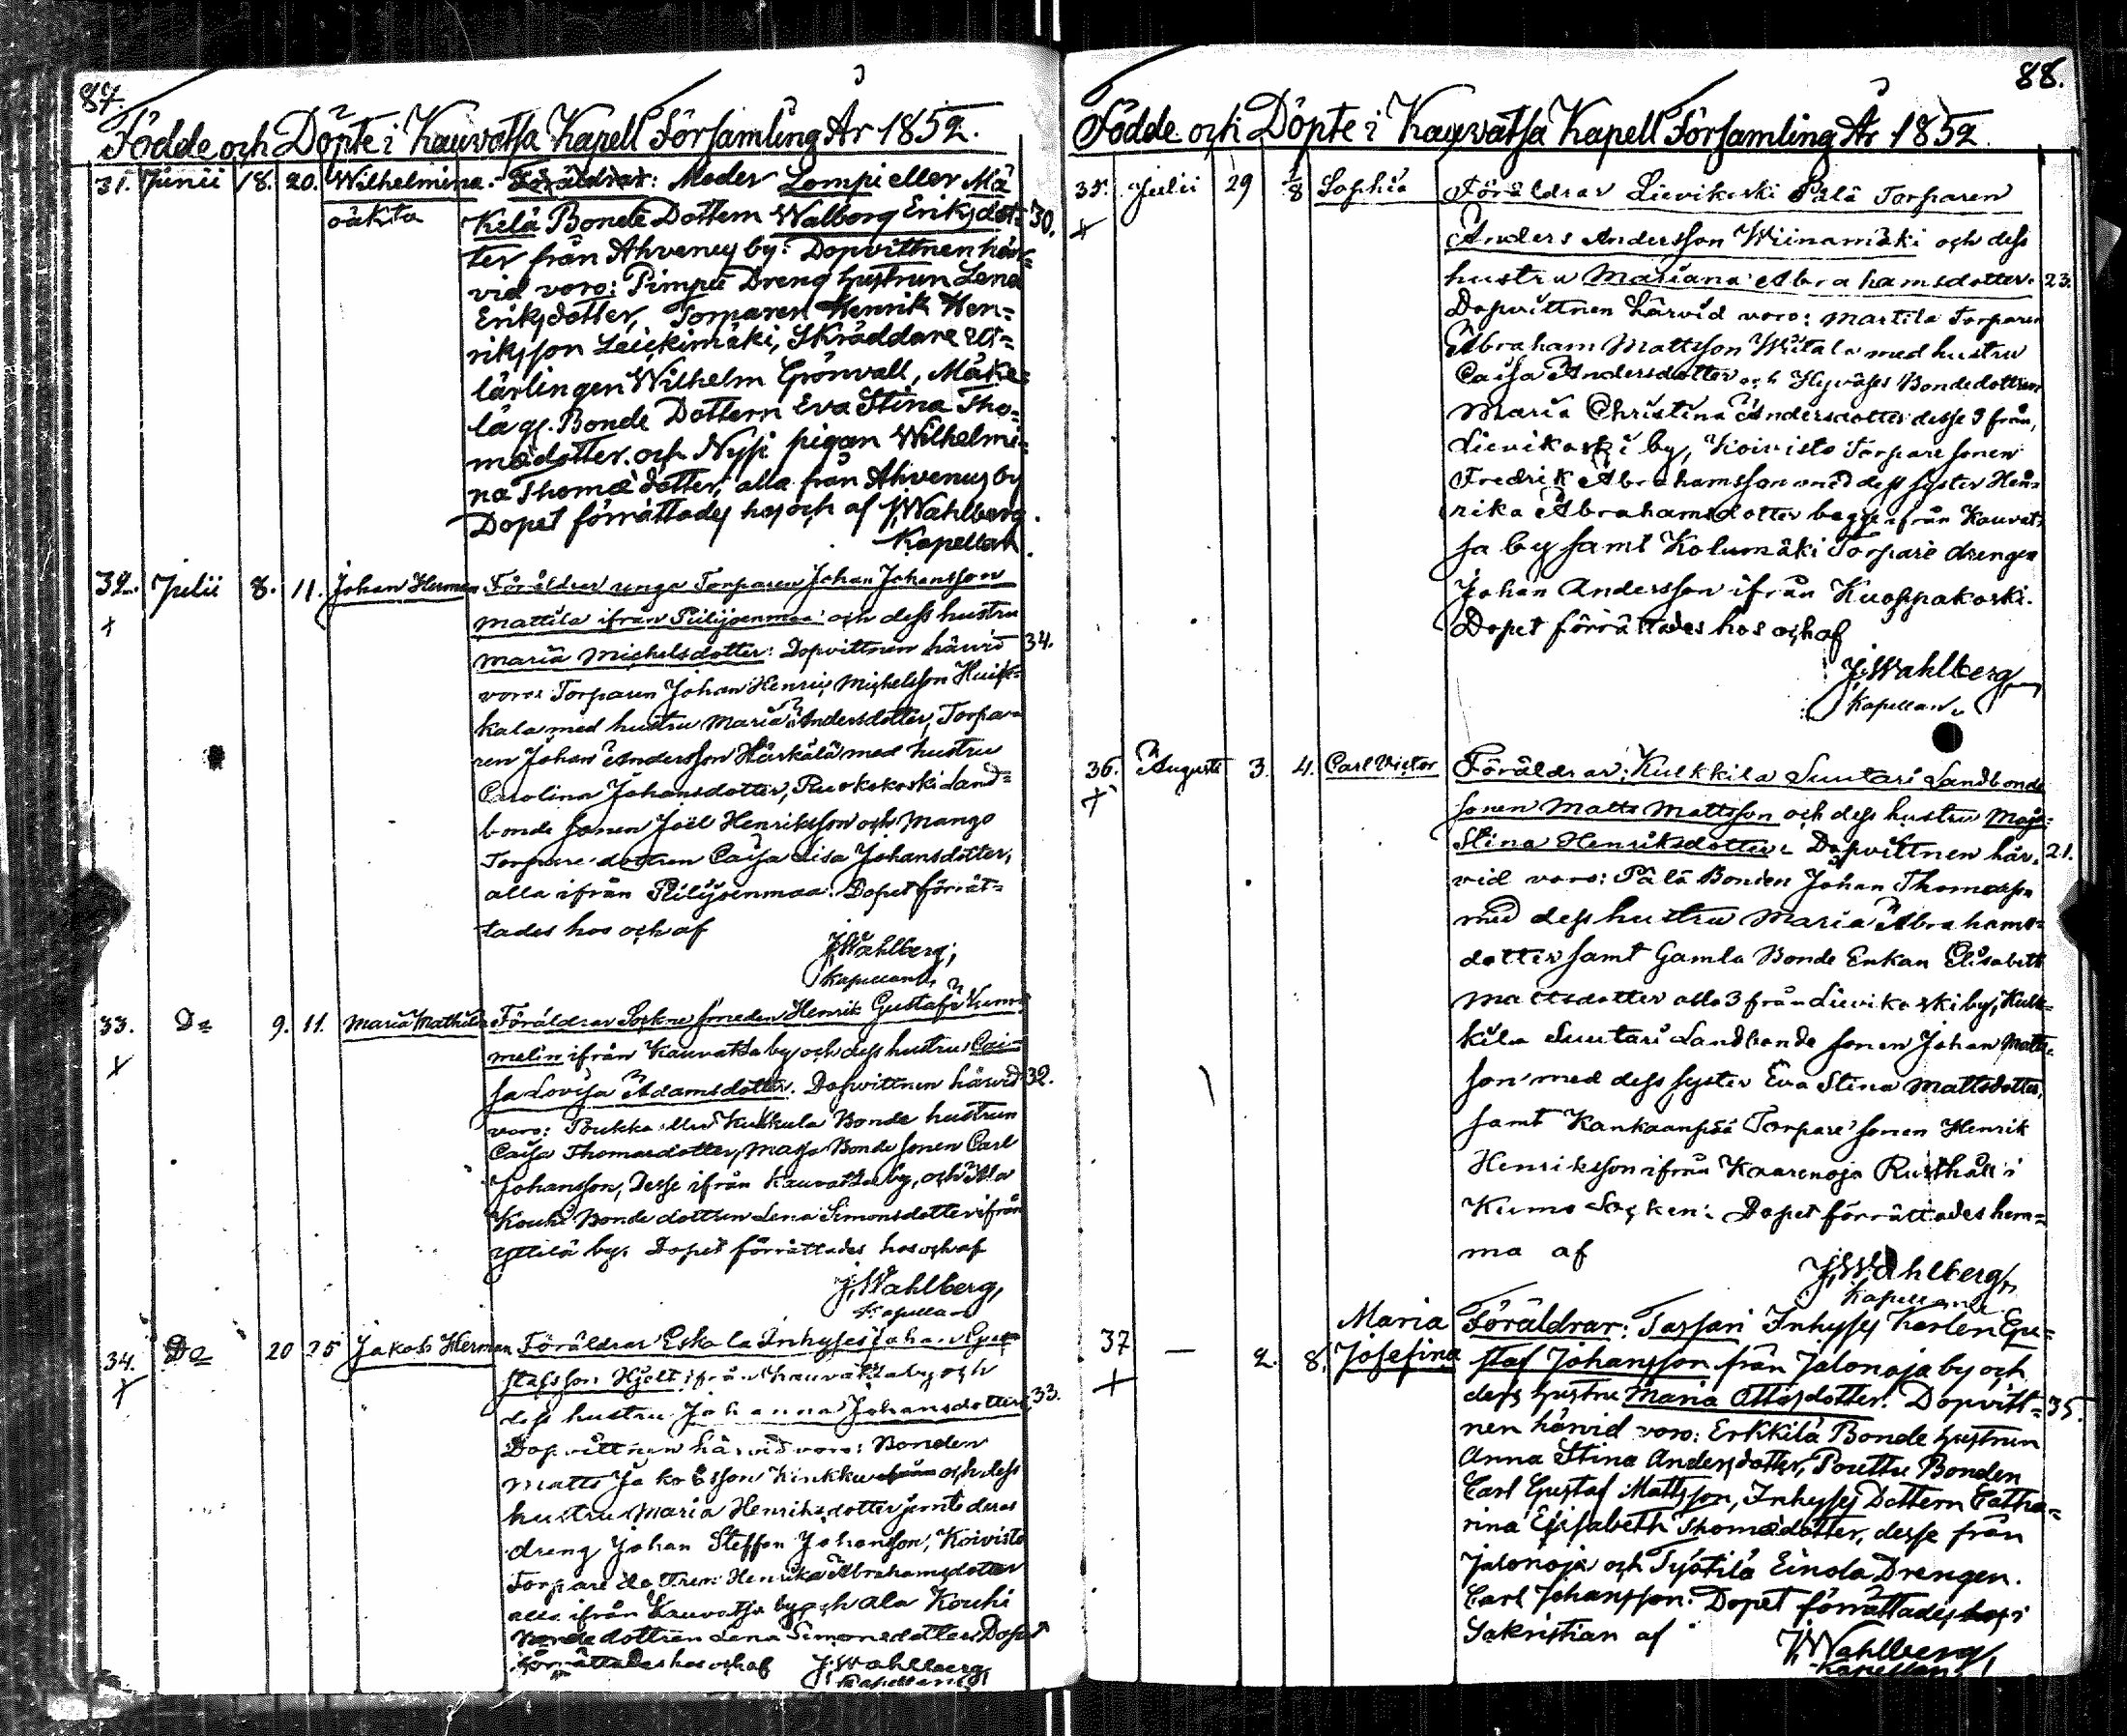 87.
Födde och Döpte i Kauvatsa Kapell Församling År 1852.
31. Junii 18. 20. Wilhelmina. Föräldrar: Moder Lompi eller Mä
oäkta Kelä Bonde Dottern Walborg Eriksdot= 30.
ter från Ahvenus by: Dopvittnen här=
vid voro: Pimpu Dreng hustrun Lena
Eriksdotter, Torparen Henrik Hen=
riksson Leickimäki, Skräddare
lärlingen Wilhelm Grönvall, Mäke=
lä gl. Bonde Dottern Eva Stina Tho=
mædotter och Nyssi pigan Wilhelmi=
na Thomædotter, alla från Ahvenus by
Dopet förrättades hos och af J. Wahlberg.
Kapellan.
32. Julii 8. 11. Johan Herman Föräldrar unga Torparen Johan Johansson
+ Mattila ifrån Piilijoenmaa och dess hustru
Maria Michelsdotter: Dopvittnen härvid 34.
voro: Torparen Johan Henric Michelsson Huik=
kala med hustru Maria Andersdotter, Torpa=
ren Johan Andersson Härkälä med hustru
Carolina Johansdotter, Ruokokoski Land=
bonde sonen Joël Henriksson och Mango
Torpare dottren Caisa Lisa Johansdotter,
alla ifrån Piilijoenmaa: Dopet förrät=
tades hos och af
J. Wahlberg,
Kapellan.
33. Do 9. 11. Maria Mathilda Föräldrar Sockne smeden Henrik Gustaf Kum=
+ melin ifrån Kauvatsa by och dess hustru Cai=
sa Lovisa Adamsdotter. Dopvittnen härvid 32.
voro: Poukka eller Kukkula Bonde hustrun
Caisa Thomasdotter, Bonde sonen Carl
Johansson, Desse ifrån Kauvatsa by, och
Kouhi Bonde dottren Lena Simonsdotter ifrån
Yttilä by. Dopet förrättades hos och af
J. Wahlberg,
Kapellan
34. Do 20 25 Jakob Herman Föräldrar Eskola Inhyses Johan Gus=
+ stafsson Hjelt ifrån Kauvatsa by och
dess hustru Johanna Johansdotter. 33.
Dopvittnen härvid voro: Bonden
Matts Jakobsson Kinkku och dess
hustru Maria Henriksdotter jemte deras
dreng Johan Steffan Johansson, Koivisto
Torpare dottren Henrika Abrahamsdotter
alla ifrån Kauvatsa by och Ala Kouhi
Bonde dottren Lena Simonsdotter. Dopet
förrättades hos och af J. Wahlberg,
Kapellan
88.
Födde och Döpte i Kauvatsa Kapell Församling År 1852.
35. Julii 29 1/8 Sophia Föräldrar Lievikoski Pälä Torparen
+ Anders Andersson Wiinamäki och dess
hustru Mariana Abrahamsdotter. 23.
Dopvittnen härvid voro: Martila Torparen
Abraham Mattsson Wiitala med hustru
Caisa Andersdotter och Hyväses Bondedottren
Maria Christina Andersdotter desse 3 från
Lievikoski by, Koivisto Torpare sonen
Fredrik Abrahamsson med dess syster Hen=
rika Abrahamsdotter begge ifrån Kauvat=
sa by samt Kolumäki Torpare drengen
Johan Andersson ifrån Kuoppakoski.
Dopet förrättades hos och af
J. Wahlberg,
Kapellan.
36. Augusti 3. 4. Carl Victor Föräldrar; Kulkkila Suutari Landbonde
+ sonen Matts Mattsson och dess hustru Maja
Stina Henriksdotter: Dopvittnen här= 21.
vid voro: Pälä Bonden Johan Thomasson
med dess hustru Maria Abrahams=
dotter samt Gamla Bonde Enkan Elisabeth
Mattsdotter alla 3 från Lievikoski by, Kulk=
kila Suutari Landbonde sonen Johan Matts=
son med dess syster Eva Stina Mattsdotter,
samt Kankaanpää Torpare sonen Henrik
Henriksson ifrån Kaarenoja Rusthåll i
Kumo Socken: Dopet förrättades hem=
ma af
J. Wahlberg,
Kapellan
37 — 2. 8. Maria Josefina Föräldrar: Tassari Inhyses Karlen Gu=
+ staf Johansson från Jalonoja by och
dess hustru Maria Ottosdotter. Dopvitt= 35.
nen härvid voro: Erkkilä Bonde hustrun
Anna Stina Andersdotter, Pouttu Bonden
Carl Gustaf Mattsson, Inhyses Dottern Catha=
rina Elisabeth Thomædotter, desse från
Jalonoja och Työtilä Einola Drengen.
Carl Johansson: Dopet förrättades hos i
Sakristian af
J. Wahlberg,
Kapellan